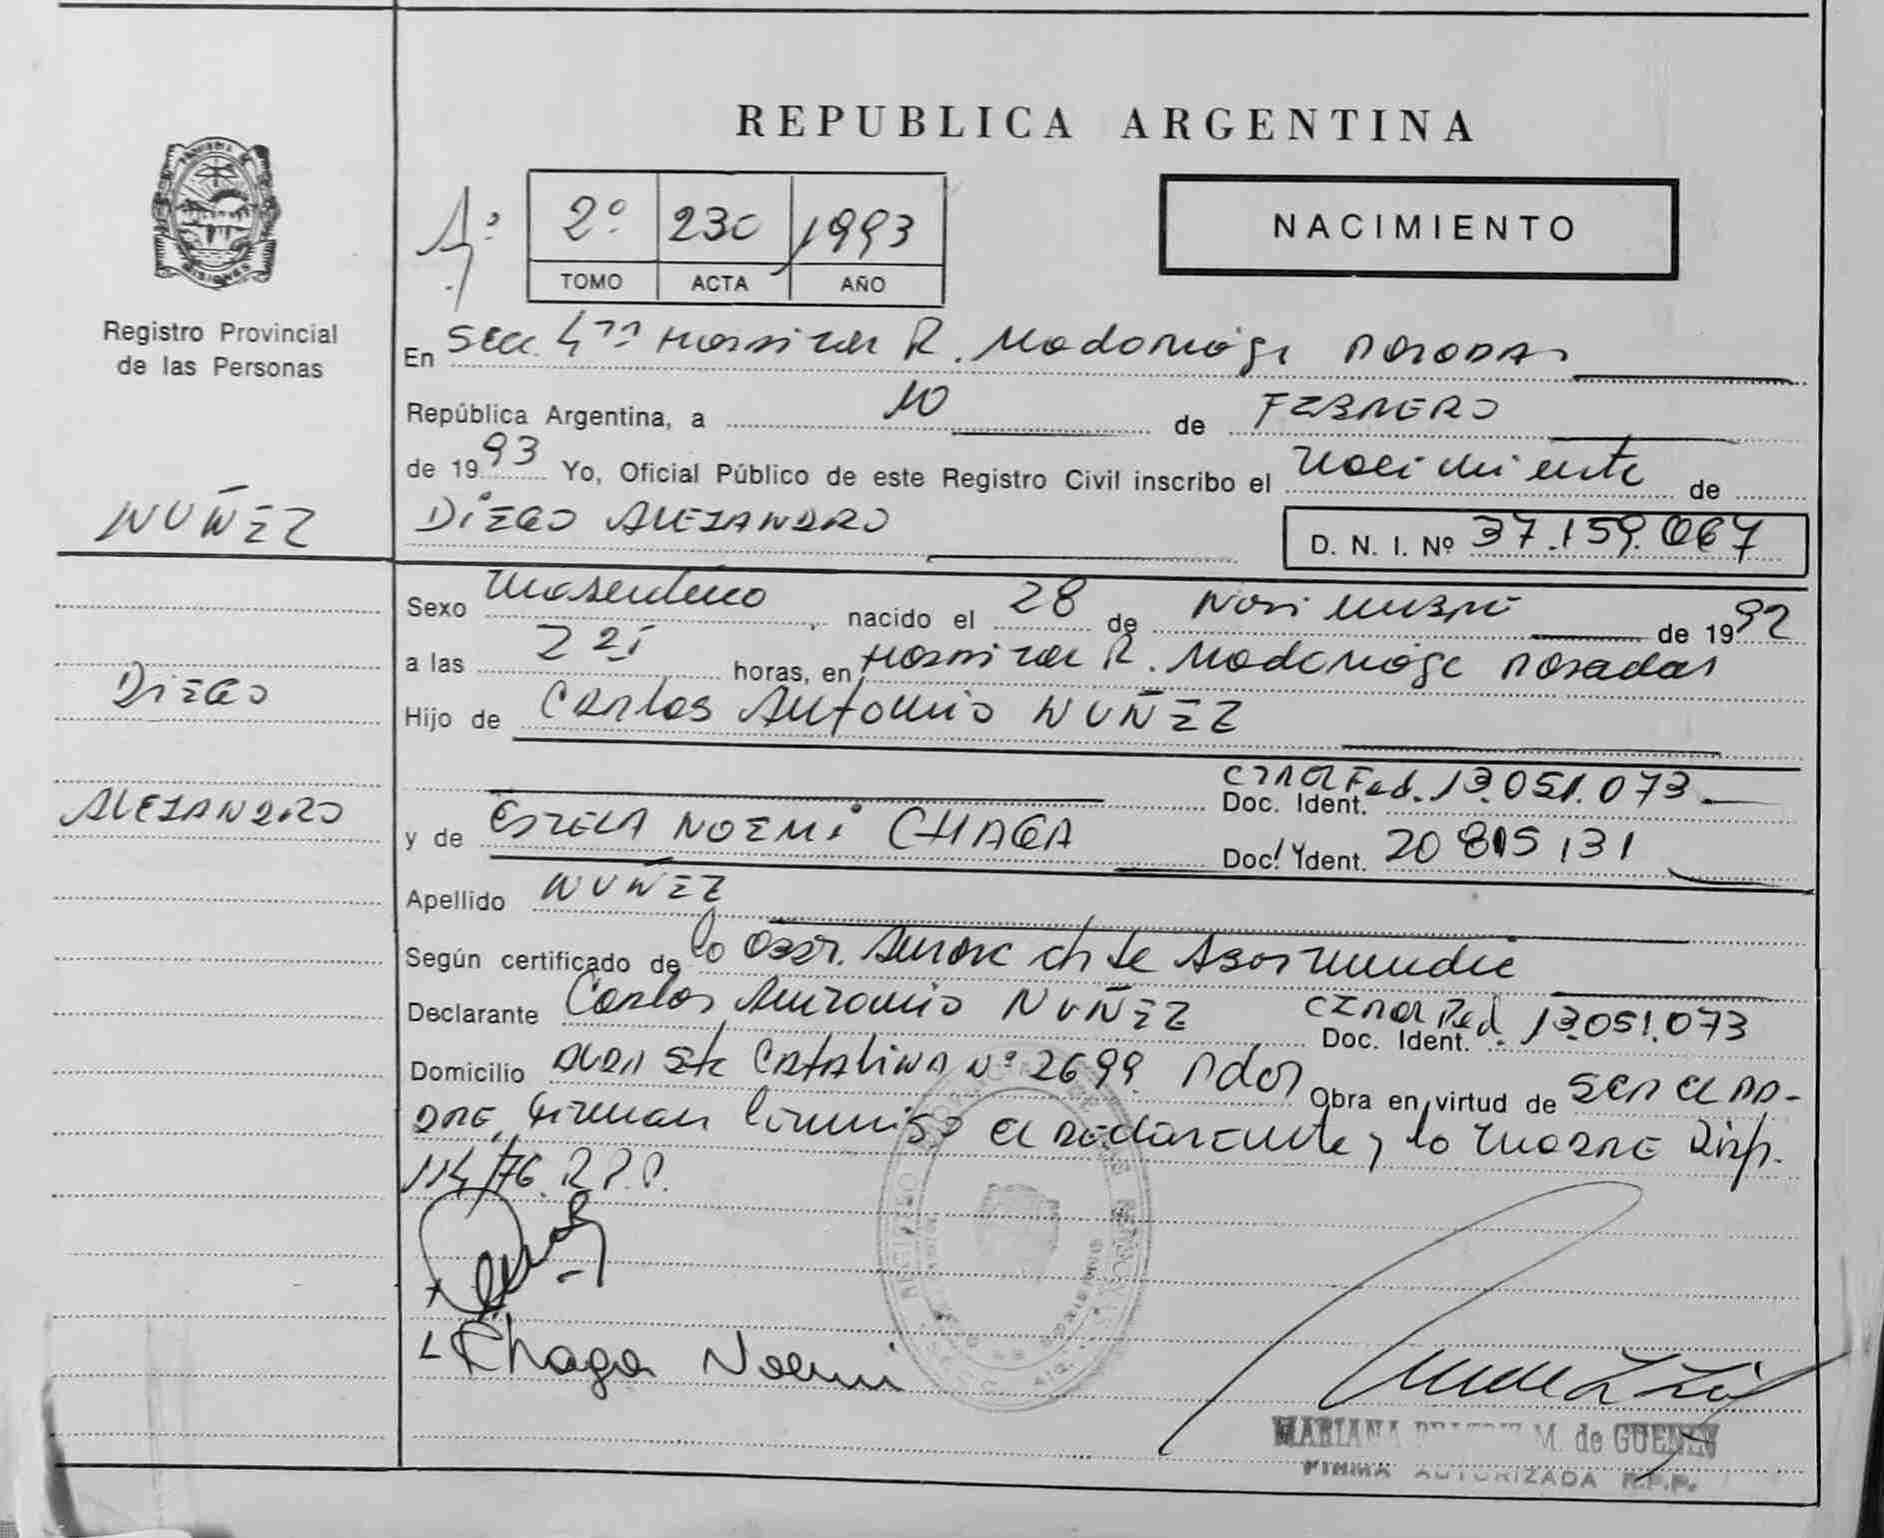 REPUBLICA ARGENTINA
2º 230 1993
TOMO ACTA AÑO
NACIMIENTO
Registro Provincial
de las Personas
En Secc. 4ta Hospital R. Madariaga Posadas
República Argentina, a 10 de FEBRERO
de 1993 Yo, Oficial Público de este Registro Civil inscribo el nacimiento de
NUÑEZ
DIEGO ALEJANDRO
D. N. I. Nº 37.159.067
Sexo masculino, nacido el 28 de Noviembre de 1992
a las 221 horas, en Hospital R. Madariaga Posadas
DIEGO
Hijo de Carlos Antonio NUÑEZ
Doc. Ident. 13.051.073
ALEJANDRO
y de ESTELA NOEMI CHAGA Doc. Ident. 20 815 131
Apellido NUÑEZ
Según certificado de la Obst.
Declarante Carlos Antonio NUÑEZ Doc. Ident. 13.051.073
Domicilio Avda Sta Catalina Nº 2699 Pdas Obra en virtud de ser el pa-
dre, firman conmigo el declarante y la madre Disp.
114/76. R.P.P.
Chaga Noemi
MARIANA BEATRIZ M. de GUENEV
FIRMA AUTORIZADA R.P.P.